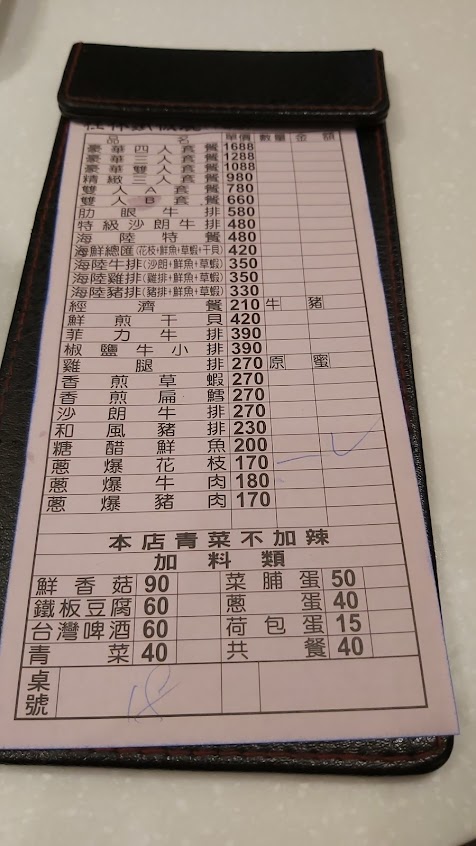 品名 單價 數量 金額
豪華四人套餐 1688
豪華三人套餐 1288
豪華雙人套餐 1088
精緻三人套餐 980
雙人A套餐 780
雙人B套餐 660
肋眼牛排 580
特級沙朗牛排 480
海陸特餐 480
海鮮總匯(花枝+鮮魚+草蝦+干貝) 420
海陸牛排(沙朗+鮮魚+草蝦) 350
海陸雞排(雞排+鮮魚+草蝦) 350
海陸豬排(豬排+鮮魚+草蝦) 330
經濟餐 210 牛 豬
鮮煎干貝 420
菲力牛排 390
椒鹽牛小排 390
雞腿排 270 原 蜜
香煎草蝦 270
香煎扁鱈 270
沙朗牛排 270
和風豬排 230
糖醋鮮魚 200
蔥爆花枝 170
蔥爆牛肉 180
蔥爆豬肉 170
本店青菜不加辣
加料類
鮮香菇 90 菜脯蛋 50
鐵板豆腐 60 蔥蛋 40
台灣啤酒 60 荷包蛋 15
青菜 40 共餐 40
桌號 18